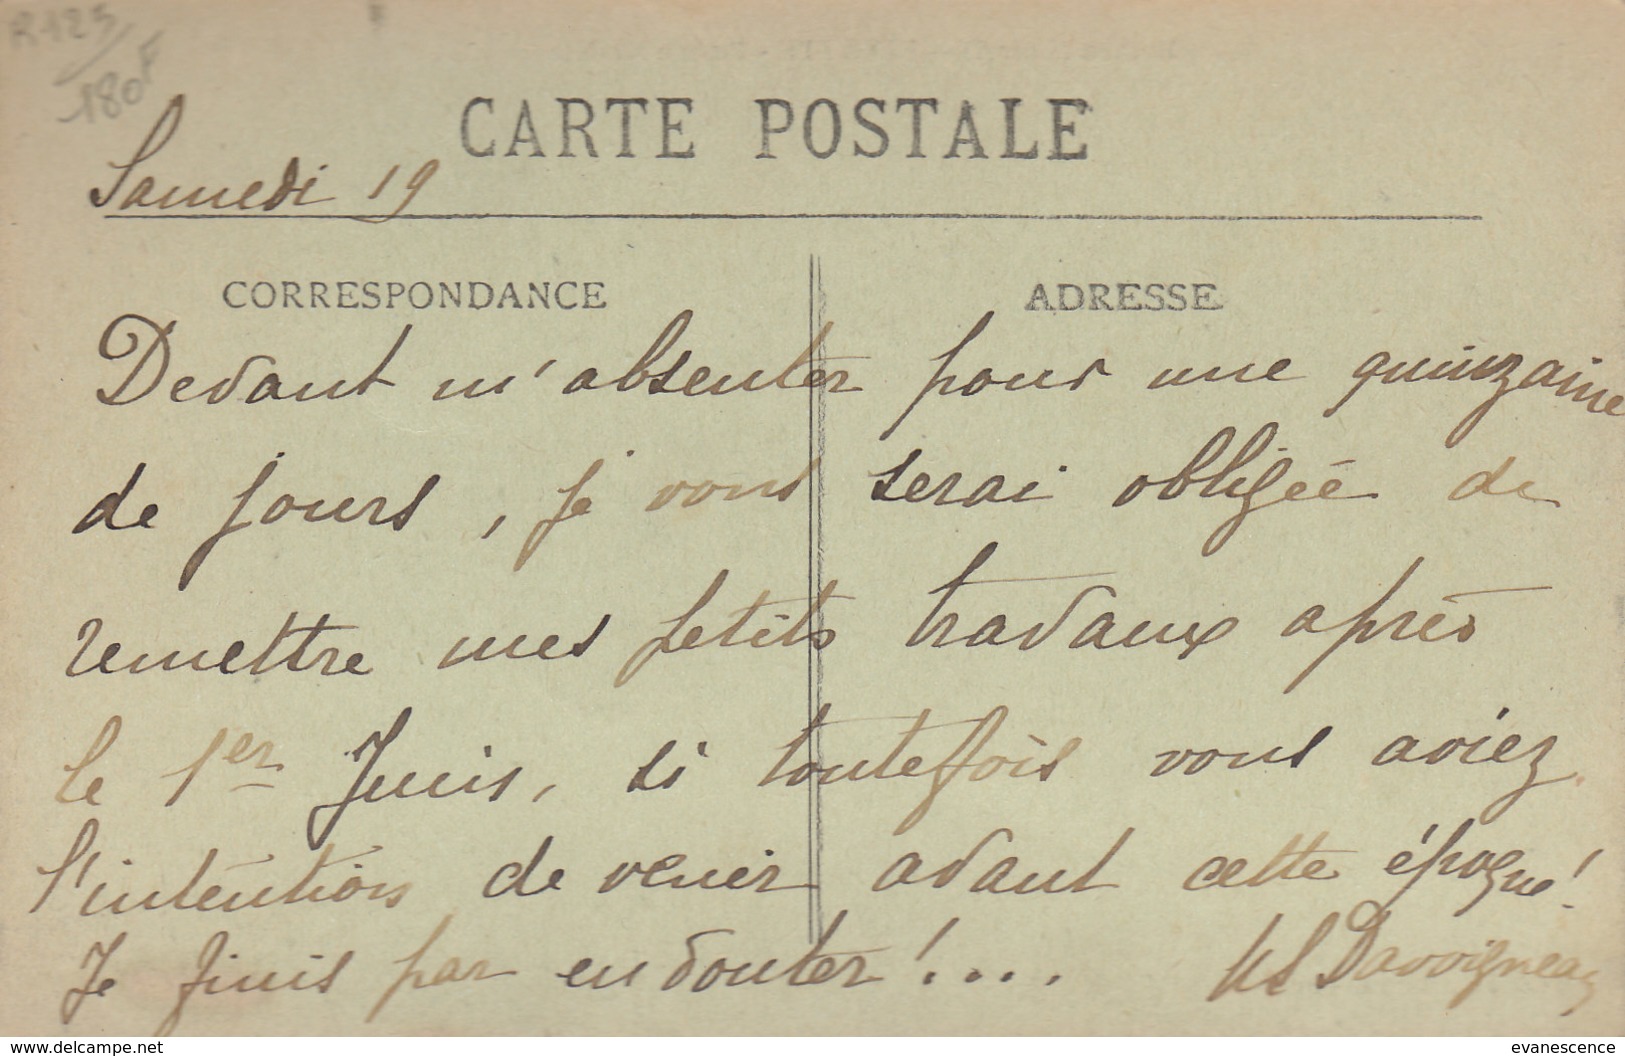 R125/
180F
CARTE POSTALE
Samedi 19
CORRESPONDANCE
ADRESSE
Devant m'absenter pour une quinzaine
de jours, je vous serai obligée de
remettre mes petits travaux après
le 1er Juin, si toutefois vous aviez
l'intention de venir avant cette époque!
Je finis par en douter!....
Davvigneau
www.delcampe.net
evanescence